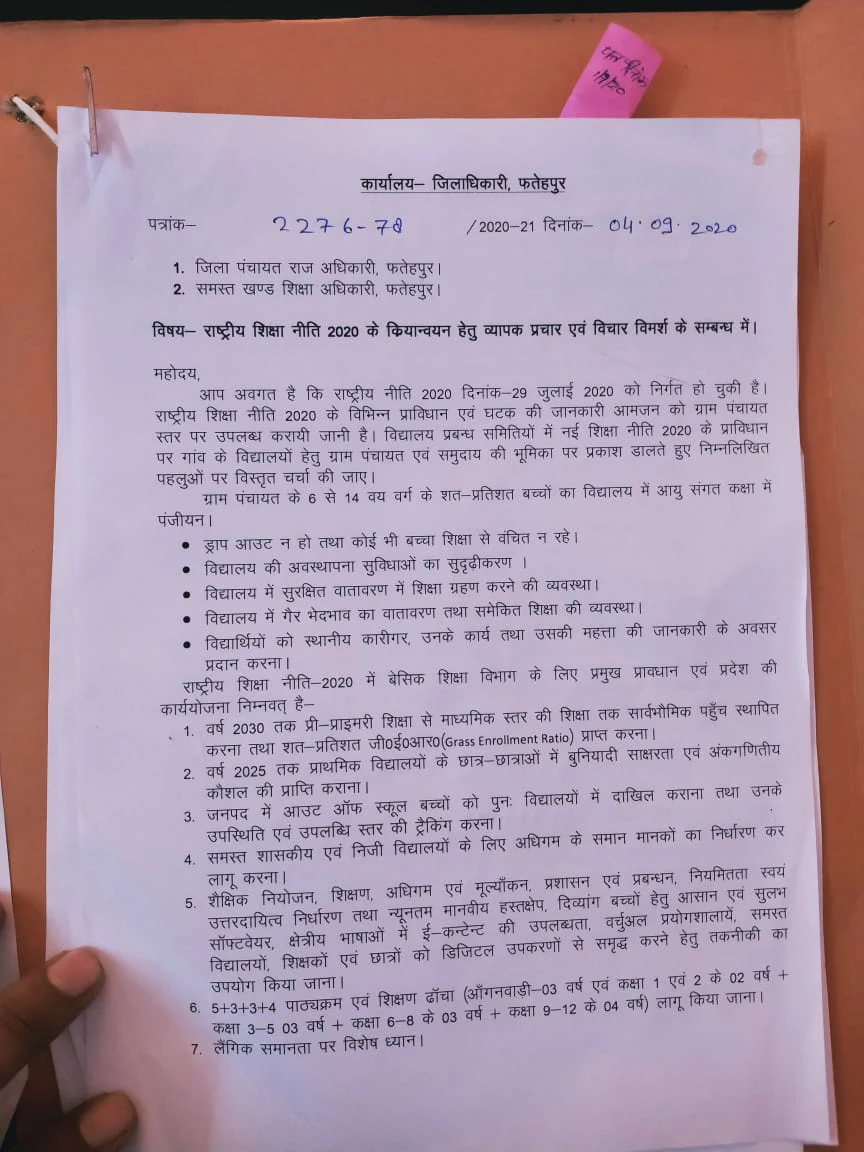 कार्यालय– जिलाधिकारी, फतेहपुर
पत्रांक– 2276-78 /2020–21 दिनांक– 04.09.2020
1. जिला पंचायत राज अधिकारी, फतेहपुर।
2. समस्त खण्ड शिक्षा अधिकारी, फतेहपुर।
विषय– राष्ट्रीय शिक्षा नीति 2020 के क्रियान्वयन हेतु व्यापक प्रचार एवं विचार विमर्श के सम्बन्ध में।
महोदय,
आप अवगत है कि राष्ट्रीय नीति 2020 दिनांक–29 जुलाई 2020 को निर्गत हो चुकी है।
राष्ट्रीय शिक्षा नीति 2020 के विभिन्न प्राविधान एवं घटक की जानकारी आमजन को ग्राम पंचायत
स्तर पर उपलब्ध करायी जानी है। विद्यालय प्रबन्ध समितियों में नई शिक्षा नीति 2020 के प्राविधान
पर गांव के विद्यालयों हेतु ग्राम पंचायत एवं समुदाय की भूमिका पर प्रकाश डालते हुए निम्नलिखित
पहलुओं पर विस्तृत चर्चा की जाए।
ग्राम पंचायत के 6 से 14 वय वर्ग के शत–प्रतिशत बच्चों का विद्यालय में आयु संगत कक्षा में
पंजीयन।
• ड्राप आउट न हो तथा कोई भी बच्चा शिक्षा से वंचित न रहे।
• विद्यालय की अवस्थापना सुविधाओं का सुदृढीकरण ।
• विद्यालय में सुरक्षित वातावरण में शिक्षा ग्रहण करने की व्यवस्था।
• विद्यालय में गैर भेदभाव का वातावरण तथा समेकित शिक्षा की व्यवस्था।
• विद्यार्थियों को स्थानीय कारीगर, उनके कार्य तथा उसकी महत्ता की जानकारी के अवसर
प्रदान करना।
राष्ट्रीय शिक्षा नीति–2020 में बेसिक शिक्षा विभाग के लिए प्रमुख प्रावधान एवं प्रदेश की
कार्ययोजना निम्नवत् है–
1. वर्ष 2030 तक प्री–प्राइमरी शिक्षा से माध्यमिक स्तर की शिक्षा तक सार्वभौमिक पहुँच स्थापित
करना तथा शत–प्रतिशत जी0ई0आर0(Grass Enrollment Ratio) प्राप्त करना।
2. वर्ष 2025 तक प्राथमिक विद्यालयों के छात्र–छात्राओं में बुनियादी साक्षरता एवं अंकगणितीय
कौशल की प्राप्ति कराना।
3. जनपद में आउट ऑफ स्कूल बच्चों को पुनः विद्यालयों में दाखिल कराना तथा उनके
उपस्थिति एवं उपलब्धि स्तर की ट्रैकिंग करना।
4. समस्त शासकीय एवं निजी विद्यालयों के लिए अधिगम के समान मानकों का निर्धारण कर
लागू करना।
5. शैक्षिक नियोजन, शिक्षण, अधिगम एवं मूल्याँकन, प्रशासन एवं प्रबन्धन, नियमितता स्वयं
उत्तरदायित्व निर्धारण तथा न्यूनतम मानवीय हस्तक्षेप, दिव्यांग बच्चों हेतु आसान एवं सुलभ
सॉफ्टवेयर, क्षेत्रीय भाषाओं में ई–कन्टेन्ट की उपलब्धता, वर्चुअल प्रयोगशालायें, समस्त
विद्यालयों, शिक्षकों एवं छात्रों को डिजिटल उपकरणों से समृद्ध करने हेतु तकनीकी का
उपयोग किया जाना।
6. 5+3+3+4 पाठ्यक्रम एवं शिक्षण ढॉचा (आँगनवाड़ी–03 वर्ष एवं कक्षा 1 एवं 2 के 02 वर्ष +
कक्षा 3–5 03 वर्ष + कक्षा 6–8 के 03 वर्ष + कक्षा 9–12 के 04 वर्ष) लागू किया जाना।
7. लैंगिक समानता पर विशेष ध्यान।